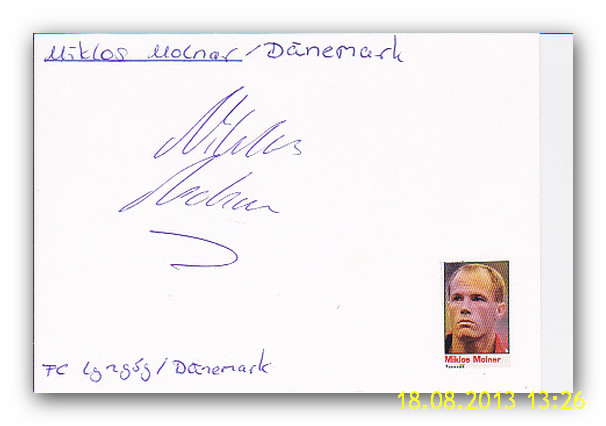 Miklos Molnar / Dänemark
Miklos
Molnar
Miklos Molnar
FC Lyngby / Dänemark
18.08.2013 13:26